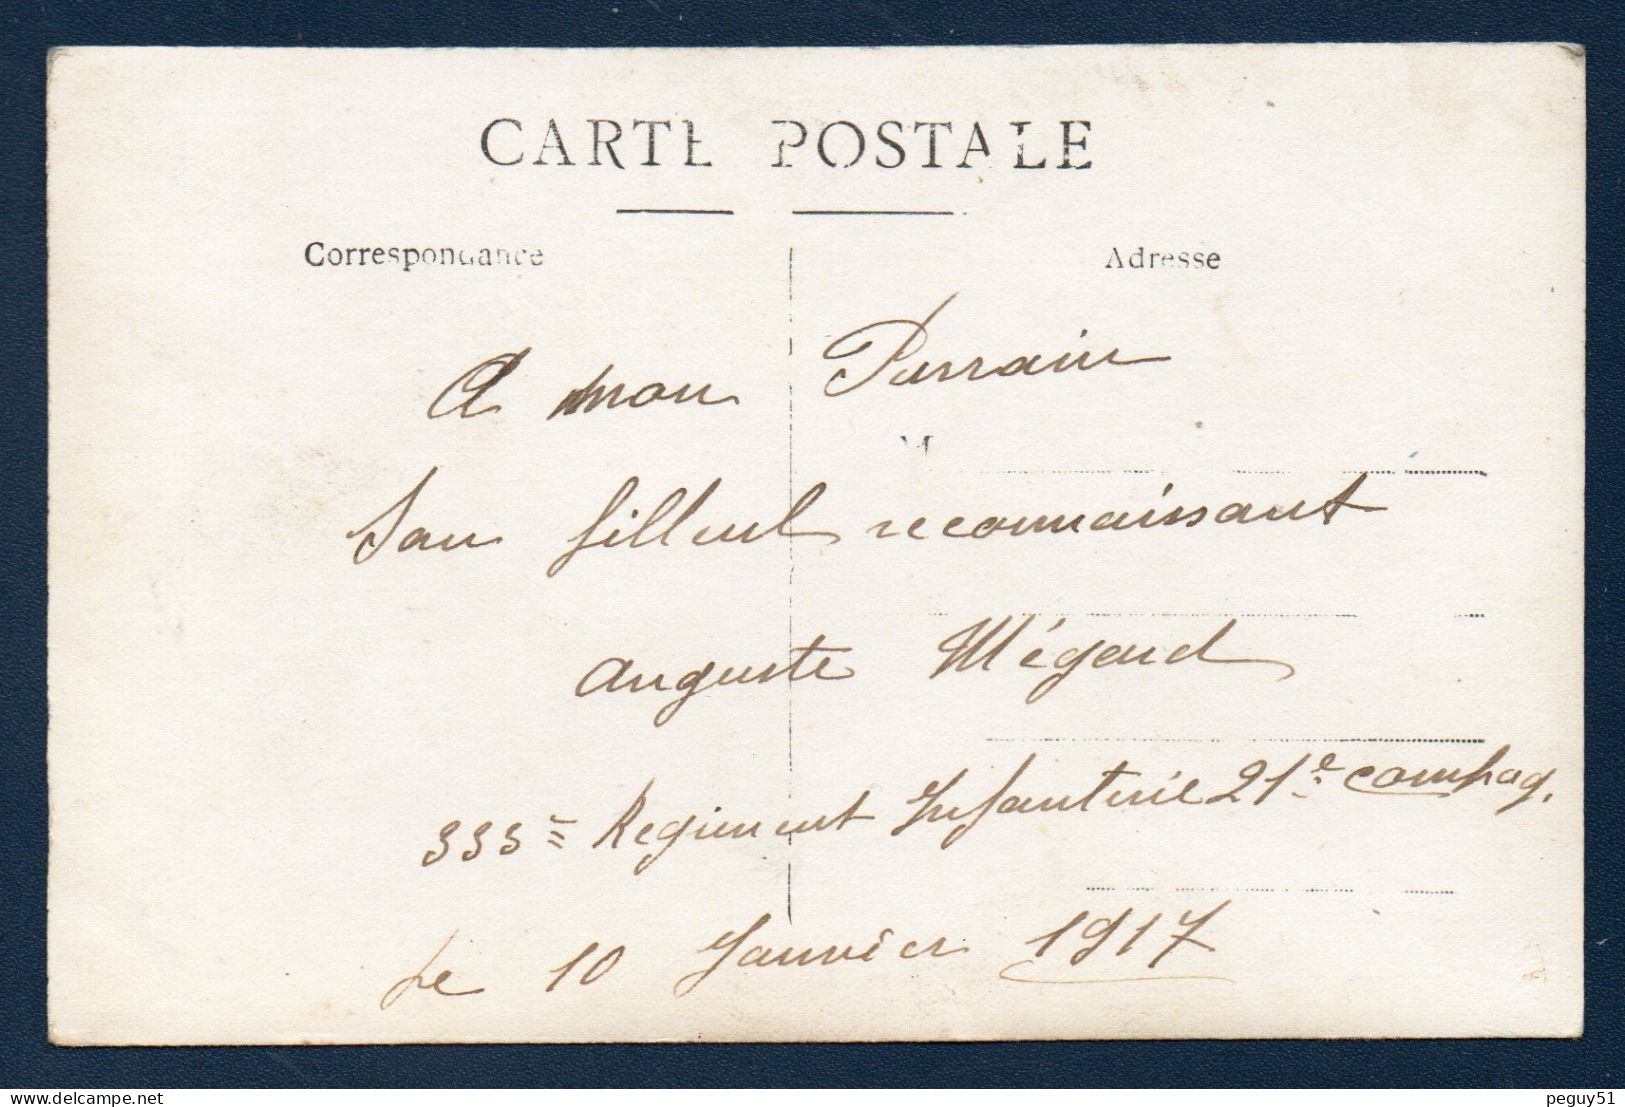 CARTE POSTALE
Correspondance
Adresse
A mon Parrain
M
Son filleul reconnaissant
Auguste Mégard
333e Regiment Infanterie 21e compag.
Le 10 Janvier 1917
peguy51